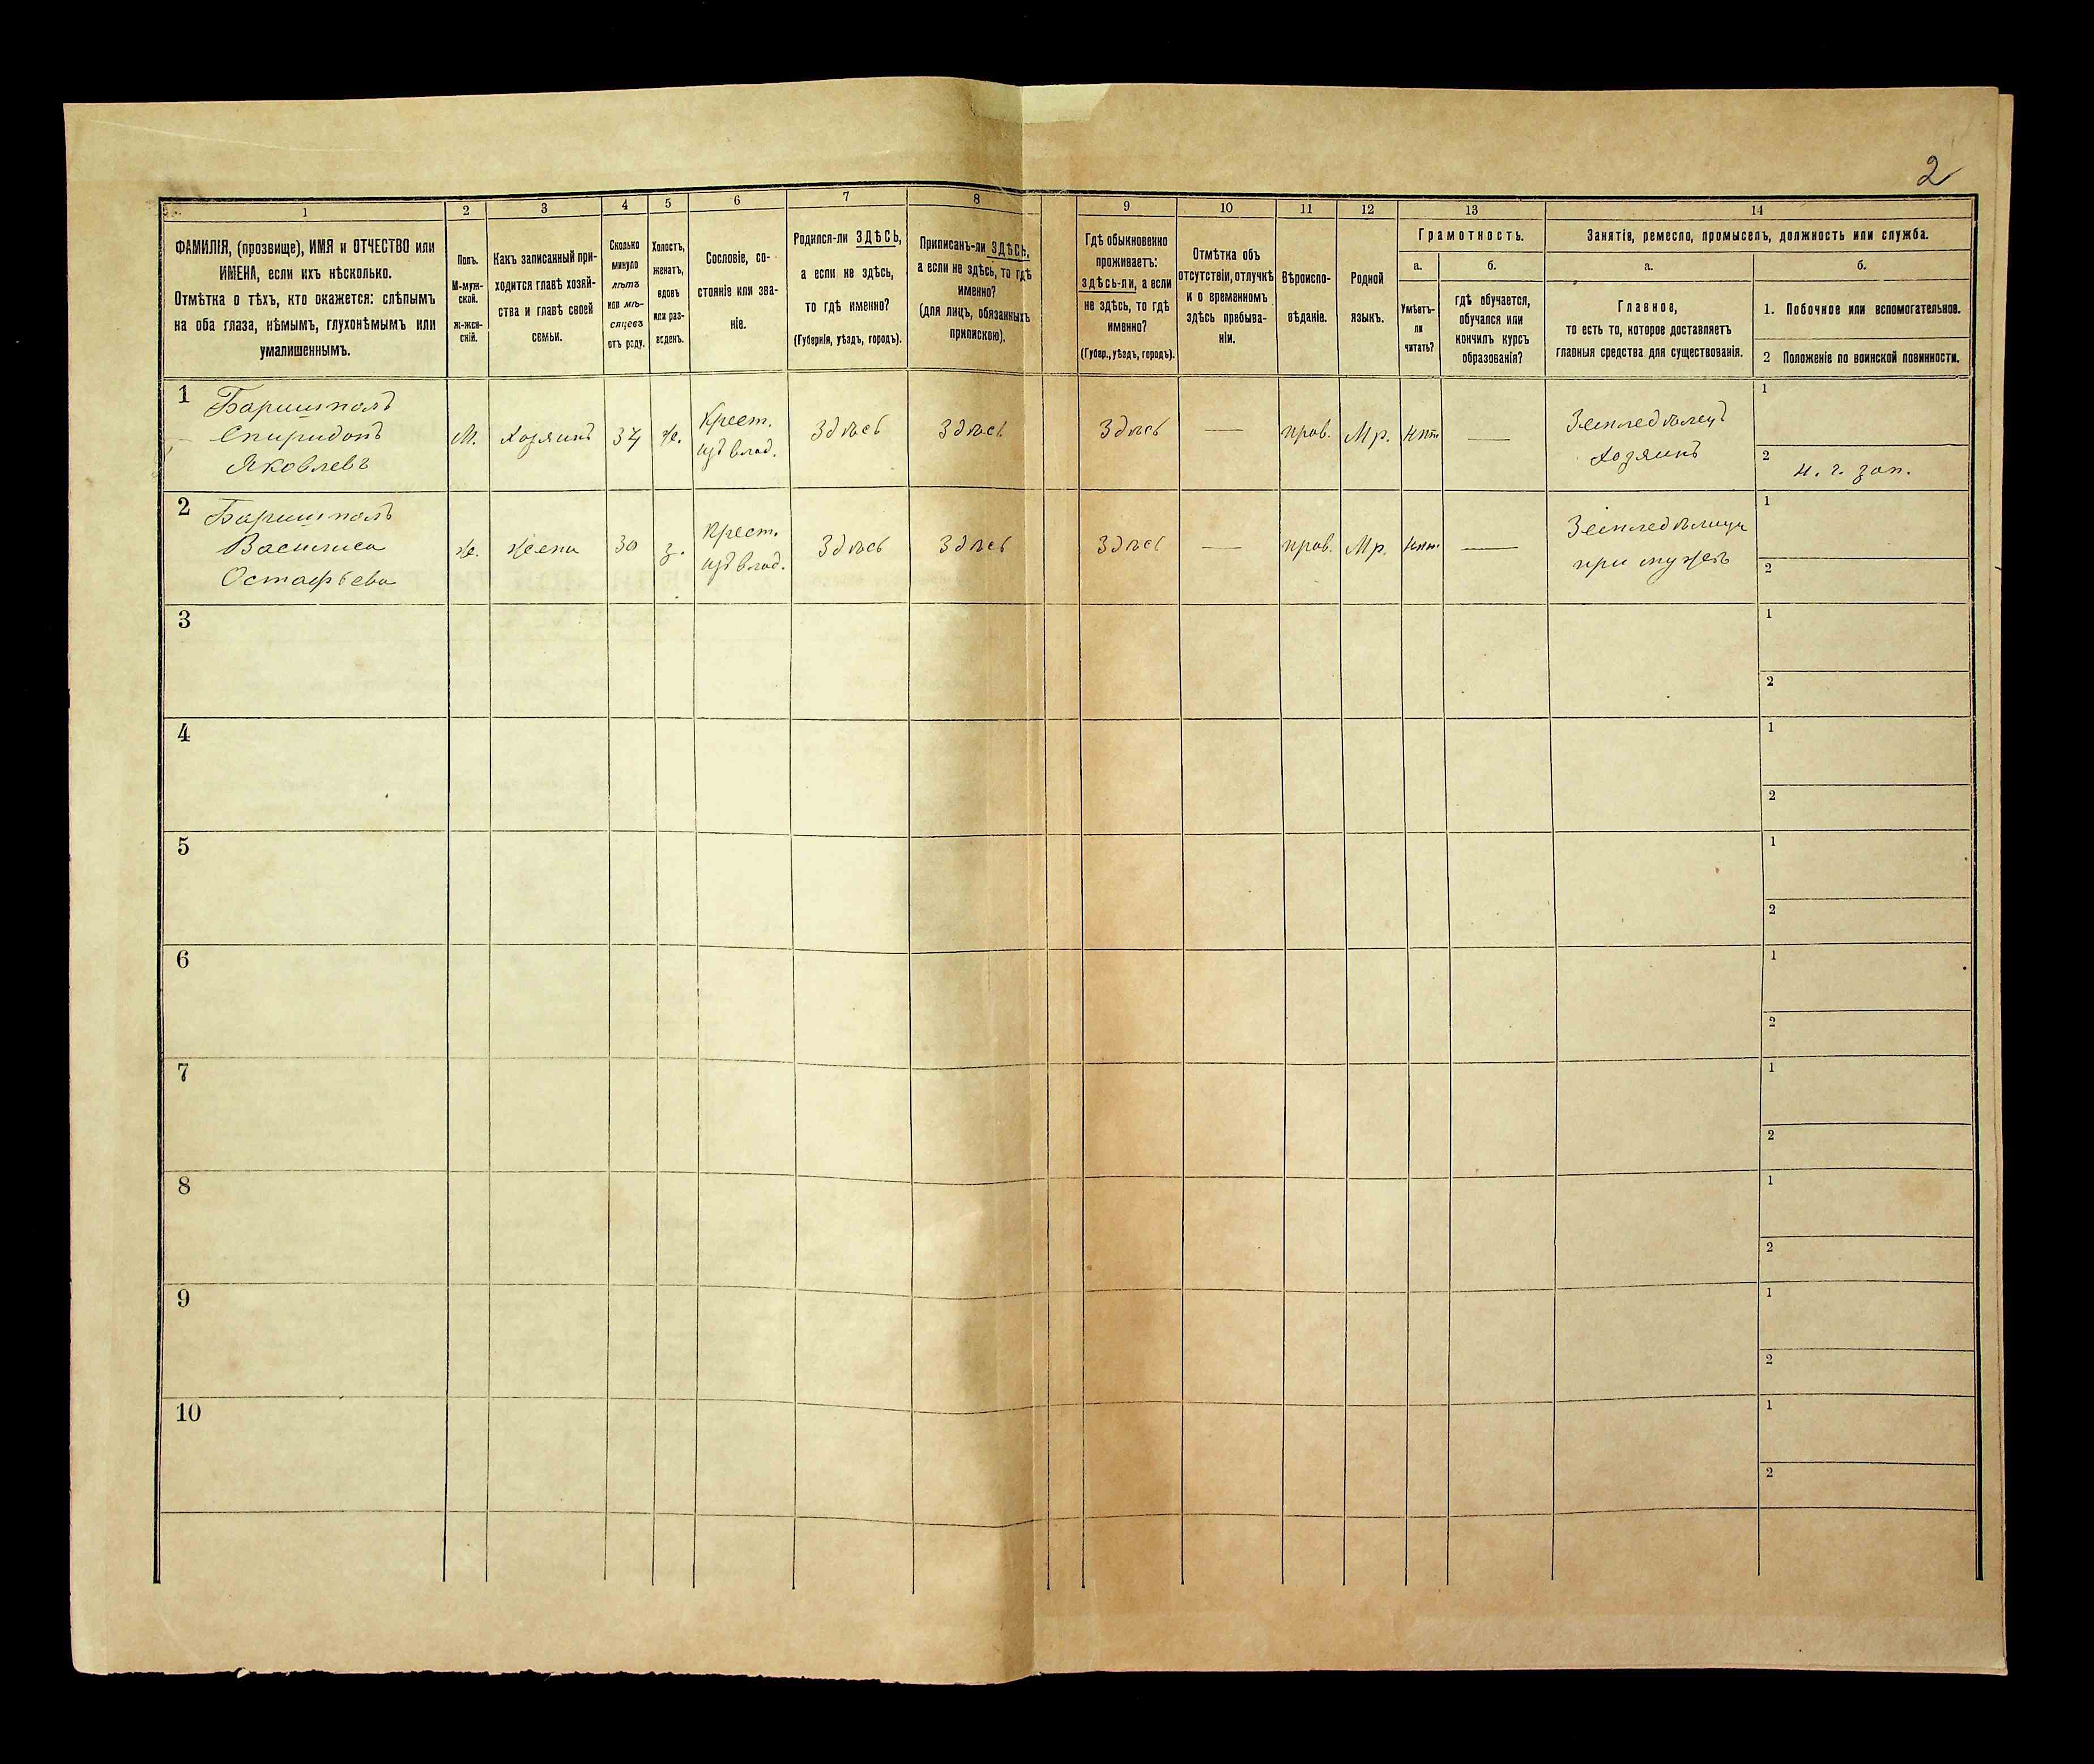 2
1
2
3
4
5
6
7
8
9
10
11
12
13
14
ФАМИЛІЯ, (прозвище), ИМЯ и ОТЧЕСТВО или
ИМЕНА, если ихъ нѣсколько.
Отмѣтка о тѣхъ, кто окажется: слѣпымъ
на оба глаза, нѣмымъ, глухонѣмымъ или
умалишеннымъ.
Полъ.
М-муж-
ской.
ж-жен-
скій.
Какъ записанный при-
ходится главѣ хозяй-
ства и главѣ своей
семьи.
Сколько
минуло
лѣтъ
или мѣ-
сяцевъ
отъ роду.
Холостъ,
женатъ,
вдовъ
или раз-
веденъ.
Сословіе, со-
стояніе или зва-
ніе.
Родился-ли ЗДѢСЬ,
а если не здѣсь,
то гдѣ именно?
(Губернія, уѣздъ, городъ).
Приписанъ-ли ЗДѢСЬ,
а если не здѣсь, то гдѣ
именно?
(для лицъ, обязанныхъ
припискою).
Гдѣ обыкновенно
проживаетъ:
здѣсь-ли, а если
не здѣсь, то гдѣ
именно?
(Губер., уѣздъ, городъ).
Отмѣтка объ
отсутствіи, отлучкѣ
и о временномъ
здѣсь пребыва-
ніи.
Вѣроиспо-
вѣданіе.
Родной
языкъ.
Грамотность.
а.
Умѣетъ-
ли
читать?
б.
гдѣ обучается,
обучался или
кончилъ курсъ
образованія?
Занятія, ремесло, промыселъ, должность или служба.
а.
Главное,
то есть то, которое доставляетъ
главныя средства для существованія.
б.
1. Побочное или вспомогательное.
2 Положеніе по воинской повинности.
1
Баришполъ
Спиридонъ
Яковлевъ
М.
Хозяинъ
34
ж.
Крест.
изъ влад.
Здѣсь
Здѣсь
Здѣсь
—
прав.
Мр.
нѣт
—
Земледѣлецъ
Хозяинъ
1
2
н. г. зап.
2
Баришполъ
Василиса
Остафьева
ж.
жена
30
з.
Крест.
изъ влад.
Здѣсь
Здѣсь
Здѣсь
—
прав.
Мр.
нѣт
—
Земледѣлица
при мужѣ
1
2
3
1
2
4
1
2
5
1
2
6
1
2
7
1
2
8
1
2
9
1
2
10
1
2